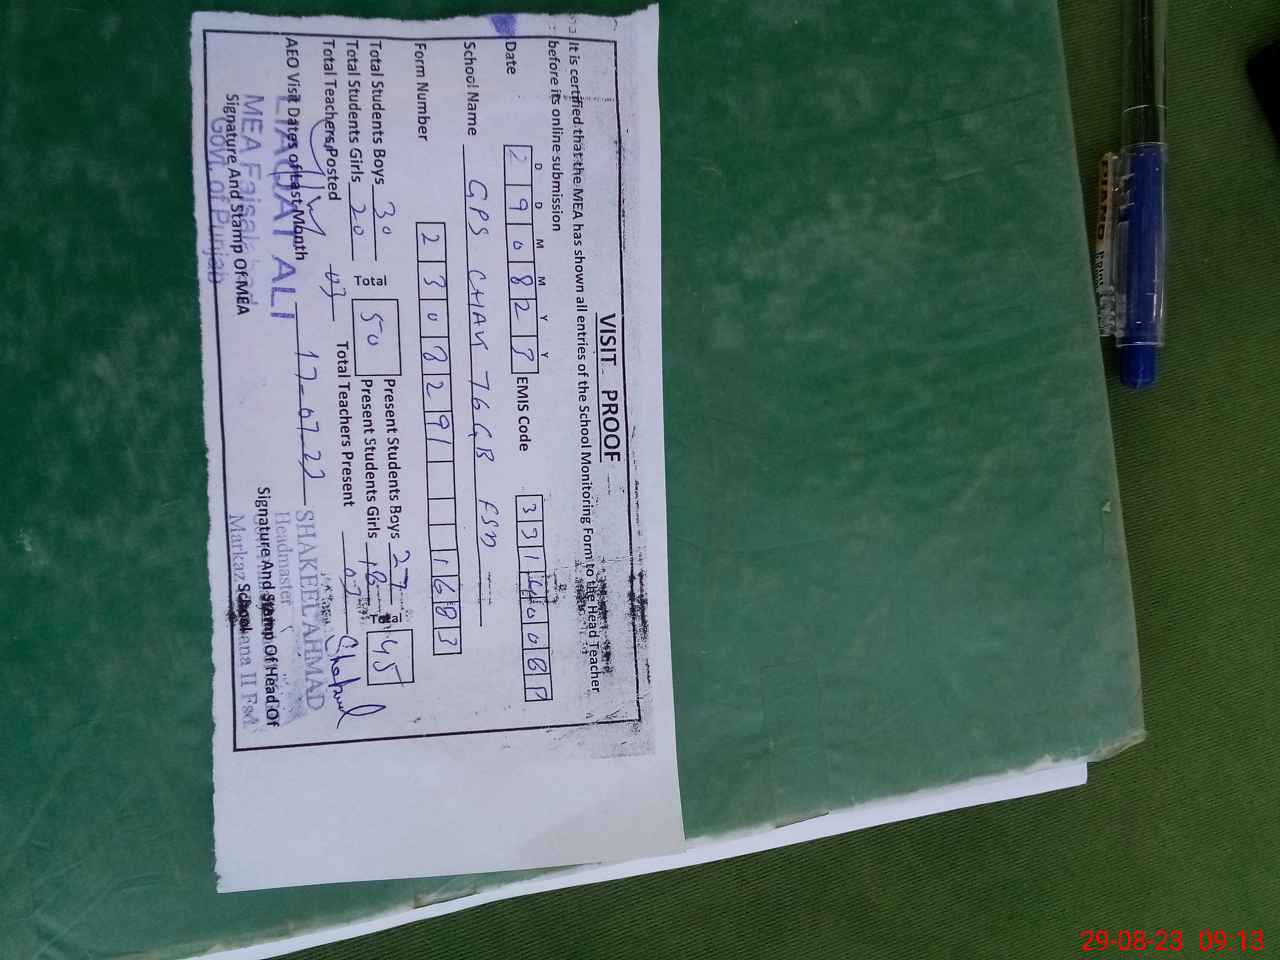 VISIT PROOF
It is certified that the MEA has shown all entries of the School Monitoring Form to the Head Teacher
before its online submission
D D M M Y Y
Date 2 9 0 8 2 3 EMIS Code 3 3 1 4 0 0 8 P
School Name GPS CHAK 76 GB FSD
Form Number 2 3 0 8 2 9 1 1 6 8 3
Total Students Boys 30 Total 50 Present Students Boys 27 Total 45
Total Students Girls 20 Present Students Girls 18
Total Teachers Posted 03 Total Teachers Present 03
AEO Visit Dates of Last Month 17-07-23
Shakeel
LIAQAT ALI
MEA Faisalabad
Govt. of Punjab
Signature And Stamp Of MEA
SHAKEEL AHMAD
Headmaster
Signature And Stamp Of Head Of
School
Markaz
II Fsd
29-08-23 09:13